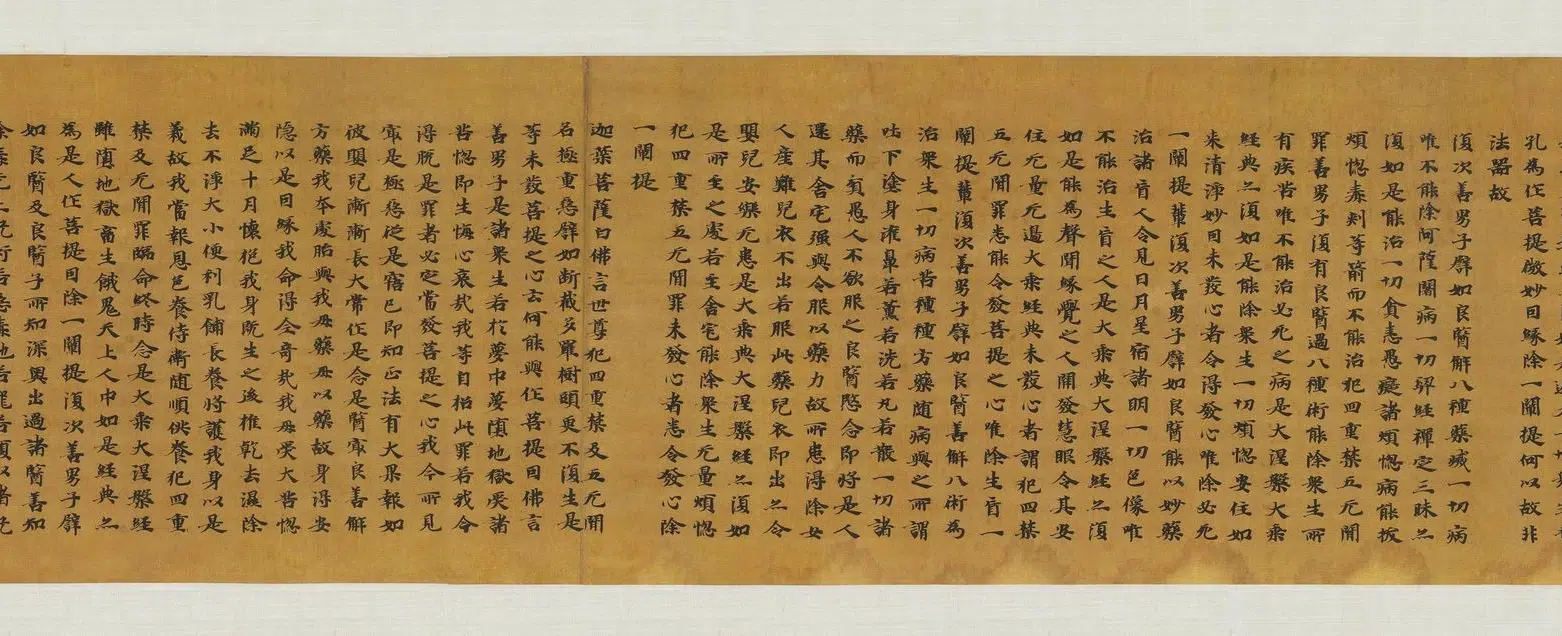 孔為作菩提微妙因緣除一闡提何以故非
法器故
復次善男子譬如良醫解八種藥滅一切病
唯不能除阿薩闍病一切契經禪定三昧亦
復如是能治一切貪恚愚癡諸煩惱病能拔
煩惱毒刾等箭而不能治犯四重禁五无間
罪善男子復有良醫過八種術能除眾生所
有疾苦唯不能治必死之病是大涅槃大乘
經典亦復如是能除眾生一切煩惱安住如
來清淨妙因未發心者令得發心唯除必死
一闡提輩復次善男子譬如良醫能以妙藥
治諸盲人令見日月星宿諸明一切色像唯
不能治生盲之人是大乘典大涅槃經亦復
如是能為聲聞緣覺之人開發慧眼令其安
住无量无邊大乘經典未發心者謂犯四禁
五无間罪悉能令發菩提之心唯除生盲一
闡提輩復次善男子譬如良醫善解八術為
治眾生一切病苦種種方藥隨病與之所謂
吐下塗身灌鼻若薰若洗若丸若散一切諸
藥而貧愚人不欲服之良醫愍念即將是人
還其舍宅強與令服以藥力故所患得除女
人產難兒衣不出若服此藥兒衣即出亦令
嬰兒安樂无患是大乘典大涅槃經亦復如
是所至之處若至舍宅能除眾生无量煩惱
犯四重禁五无間罪未發心者悉令發心除
一闡提
迦葉菩薩白佛言世尊犯四重禁及五无間
名極重惡譬如斷截多羅樹頭更不復生是
等未發菩提之心云何能與作菩提因佛言
善男子是諸眾生若於夢中夢墮地獄受諸
苦惱即生悔心哀哉我等自招此罪若我今
得脫是罪者必定當發菩提之心我今所見
最是極惡從是寤已即知正法有大果報如
彼嬰兒漸漸長大常作是念是醫最良善解
方藥我本處胎與我母藥母以藥故身得安
隱以是因緣我命得全奇哉我母受大苦惱
滿足十月懷抱我身既生之後推乾去濕除
去不淨大小便利乳餔長養將護我身以是
義故我當報恩色養侍衛隨順供養犯四重
禁及无間罪臨命終時念是大乘大涅槃經
雖墮地獄畜生餓鬼天上人中如是經典亦
為是人作菩提因除一闡提復次善男子譬
如良醫及良醫子所知深奧出過諸醫善知